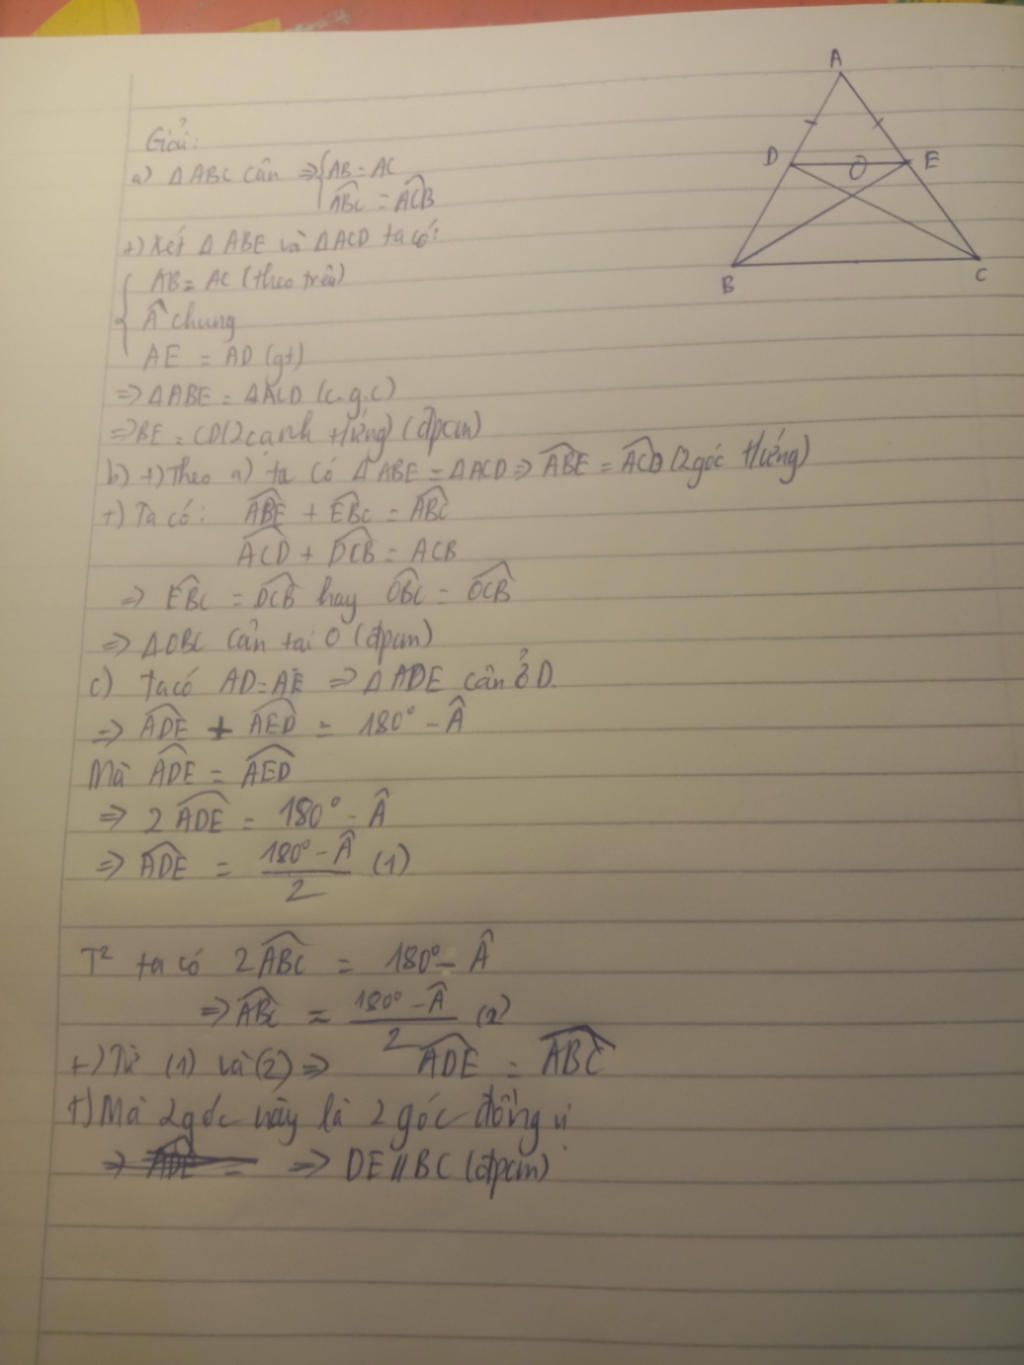 A
D
O
E
B
C
Giải:
a) ΔABC cân ⇒ { AB = AC
ABC^ = ACB^
+) Xét ΔABE và ΔACD ta có:
{ AB = AC (theo trên)
Â chung
AE = AD (gt)
⇒ ΔABE = ΔACD (c.g.c)
⇒ BE = CD (2 cạnh tứng) (đpcm)
b) +) Theo a) ta có ΔABE = ΔACD ⇒ ABE^ = ACD^ (2 góc tứng)
+) Ta có: ABE^ + EBC^ = ABC^
ACD^ + DCB^ = ACB
⇒ EBC^ = DCB^ hay OBC^ = OCB^
⇒ ΔOBC cân tai O (đpcm)
c) Ta có AD = AE ⇒ ΔADE cân ở D.
⇒ ADE^ + AED^ = 180° - Â
Mà ADE^ = AED^
⇒ 2ADE^ = 180° - Â
⇒ ADE^ = (180° - Â)/2 (1)
T² ta có 2ABC^ = 180° - Â
⇒ ABC^ = (180° - Â)/2 (2)
+) Từ (1) và (2) ⇒ ADE^ = ABC^
+) Mà 2 góc này là 2 góc đồng vị
⇒ DE // BC (đpcm)